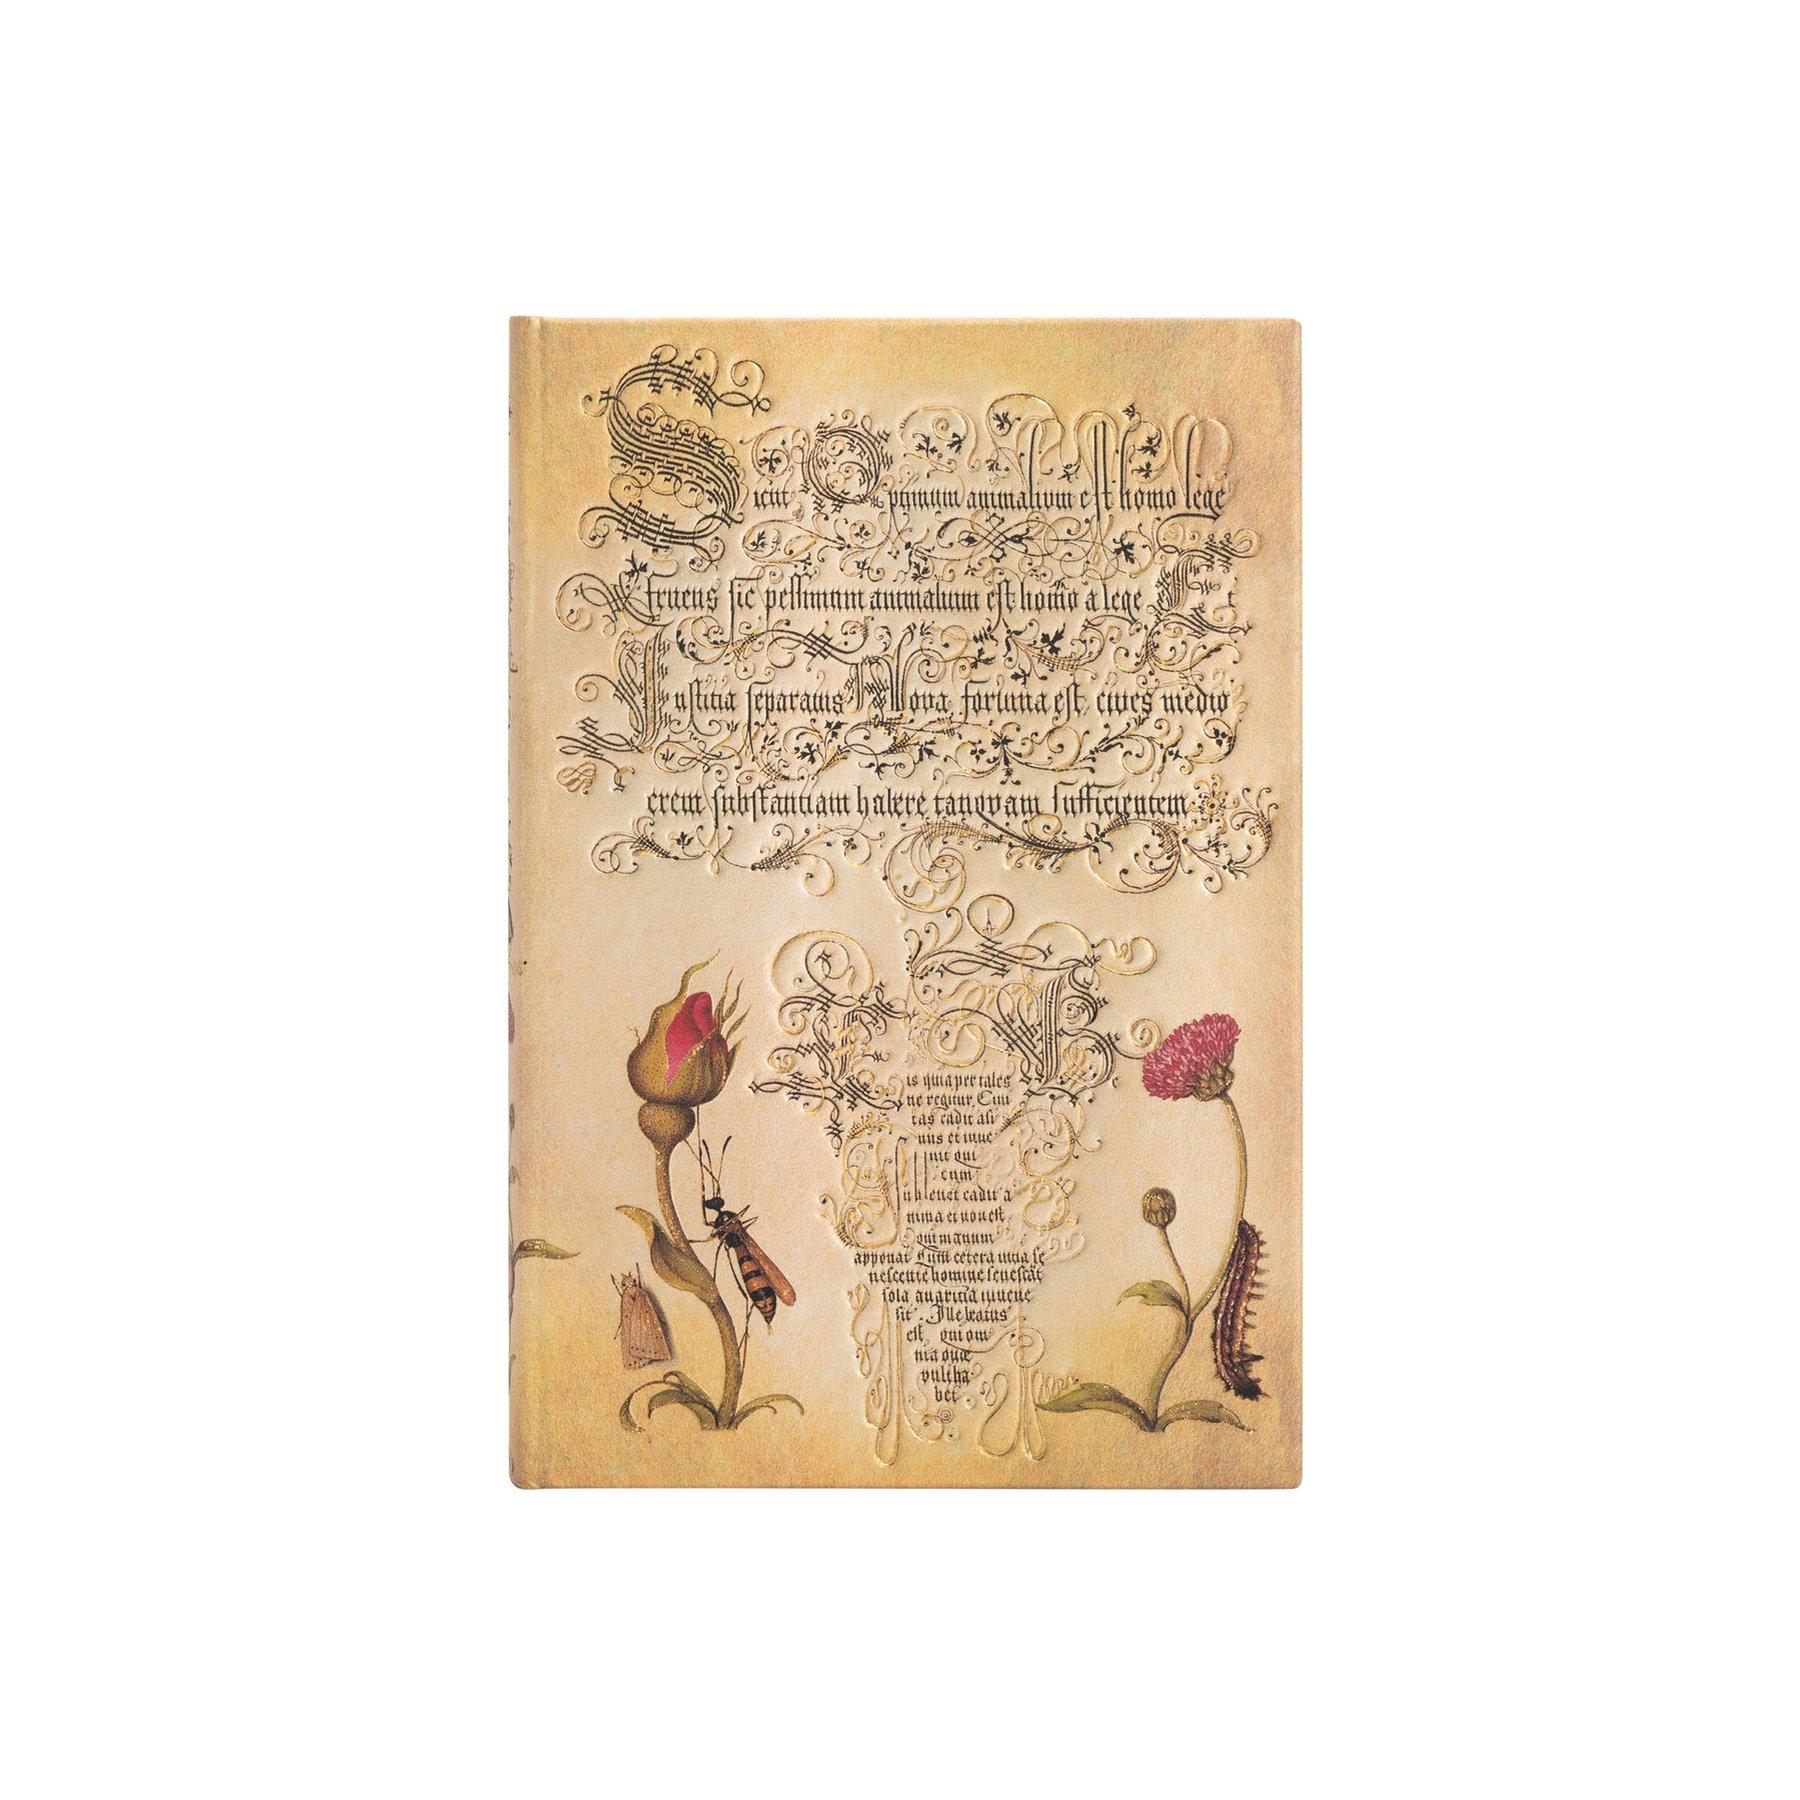 Sicut Optimum animalium est homo lege
fruens sic pessimum animalium est homo a lege Et
Justitia separatus Nova fortuna est cives medio
crem substantiam habere tanovam sufficientem
is quia per tales
ne regitur, Ciui
tas cadit asi
nus et inue
nit qui
cum
subleuet cadit a
nima et non est
qui manum
apponat Cum cetera uitia se
nescente homine senescāt
sola auaritia iuuene
sit. Ille beatus
est, qui om
nia quæ
vult ha
bet.